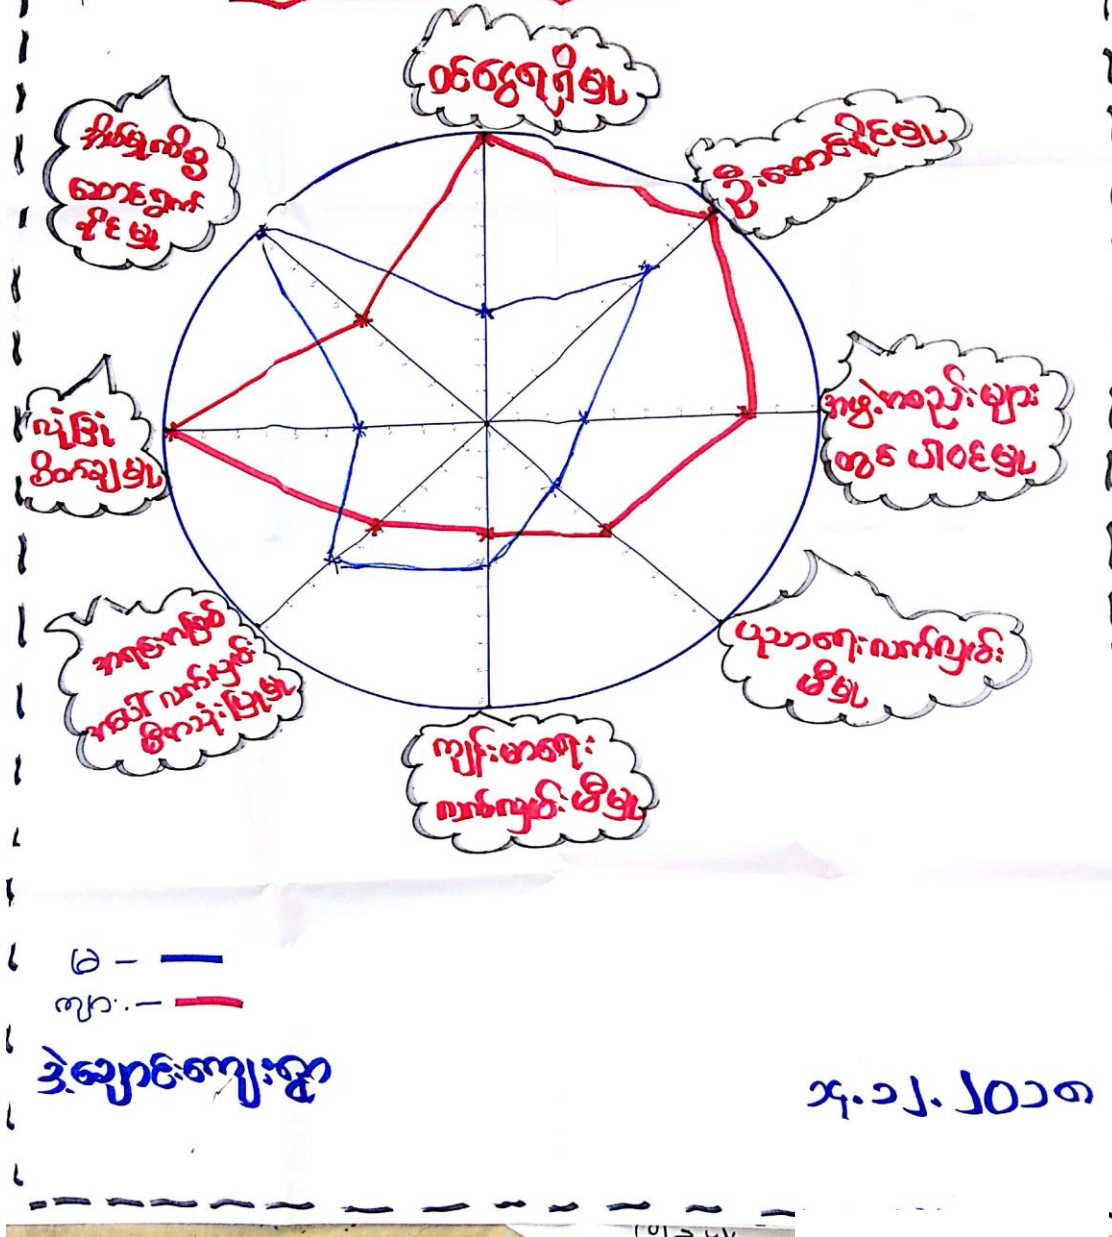 ဝင်ငွေရရှိမှု
ဦးဆောင်နိုင်မှု
အဖွဲ့အစည်းများ
တွင် ပါဝင်မှု
ပညာရေးလက်လှမ်း
မီမှု
ကျန်းမာရေး
လက်လှမ်းမီမှု
အရင်းအမြစ်
အပေါ် လက်လှမ်း
မီအသုံးပြုမှု
လုံခြုံ
စိတ်ချမှု
အိမ်မှုကိစ္စ
ဆောင်ရွက်
နိုင်မှု
မ -
ကျား -
ဒဲ့ချောင်းကျေးရွာ
၁၄.၁၂.၂၀၁၈